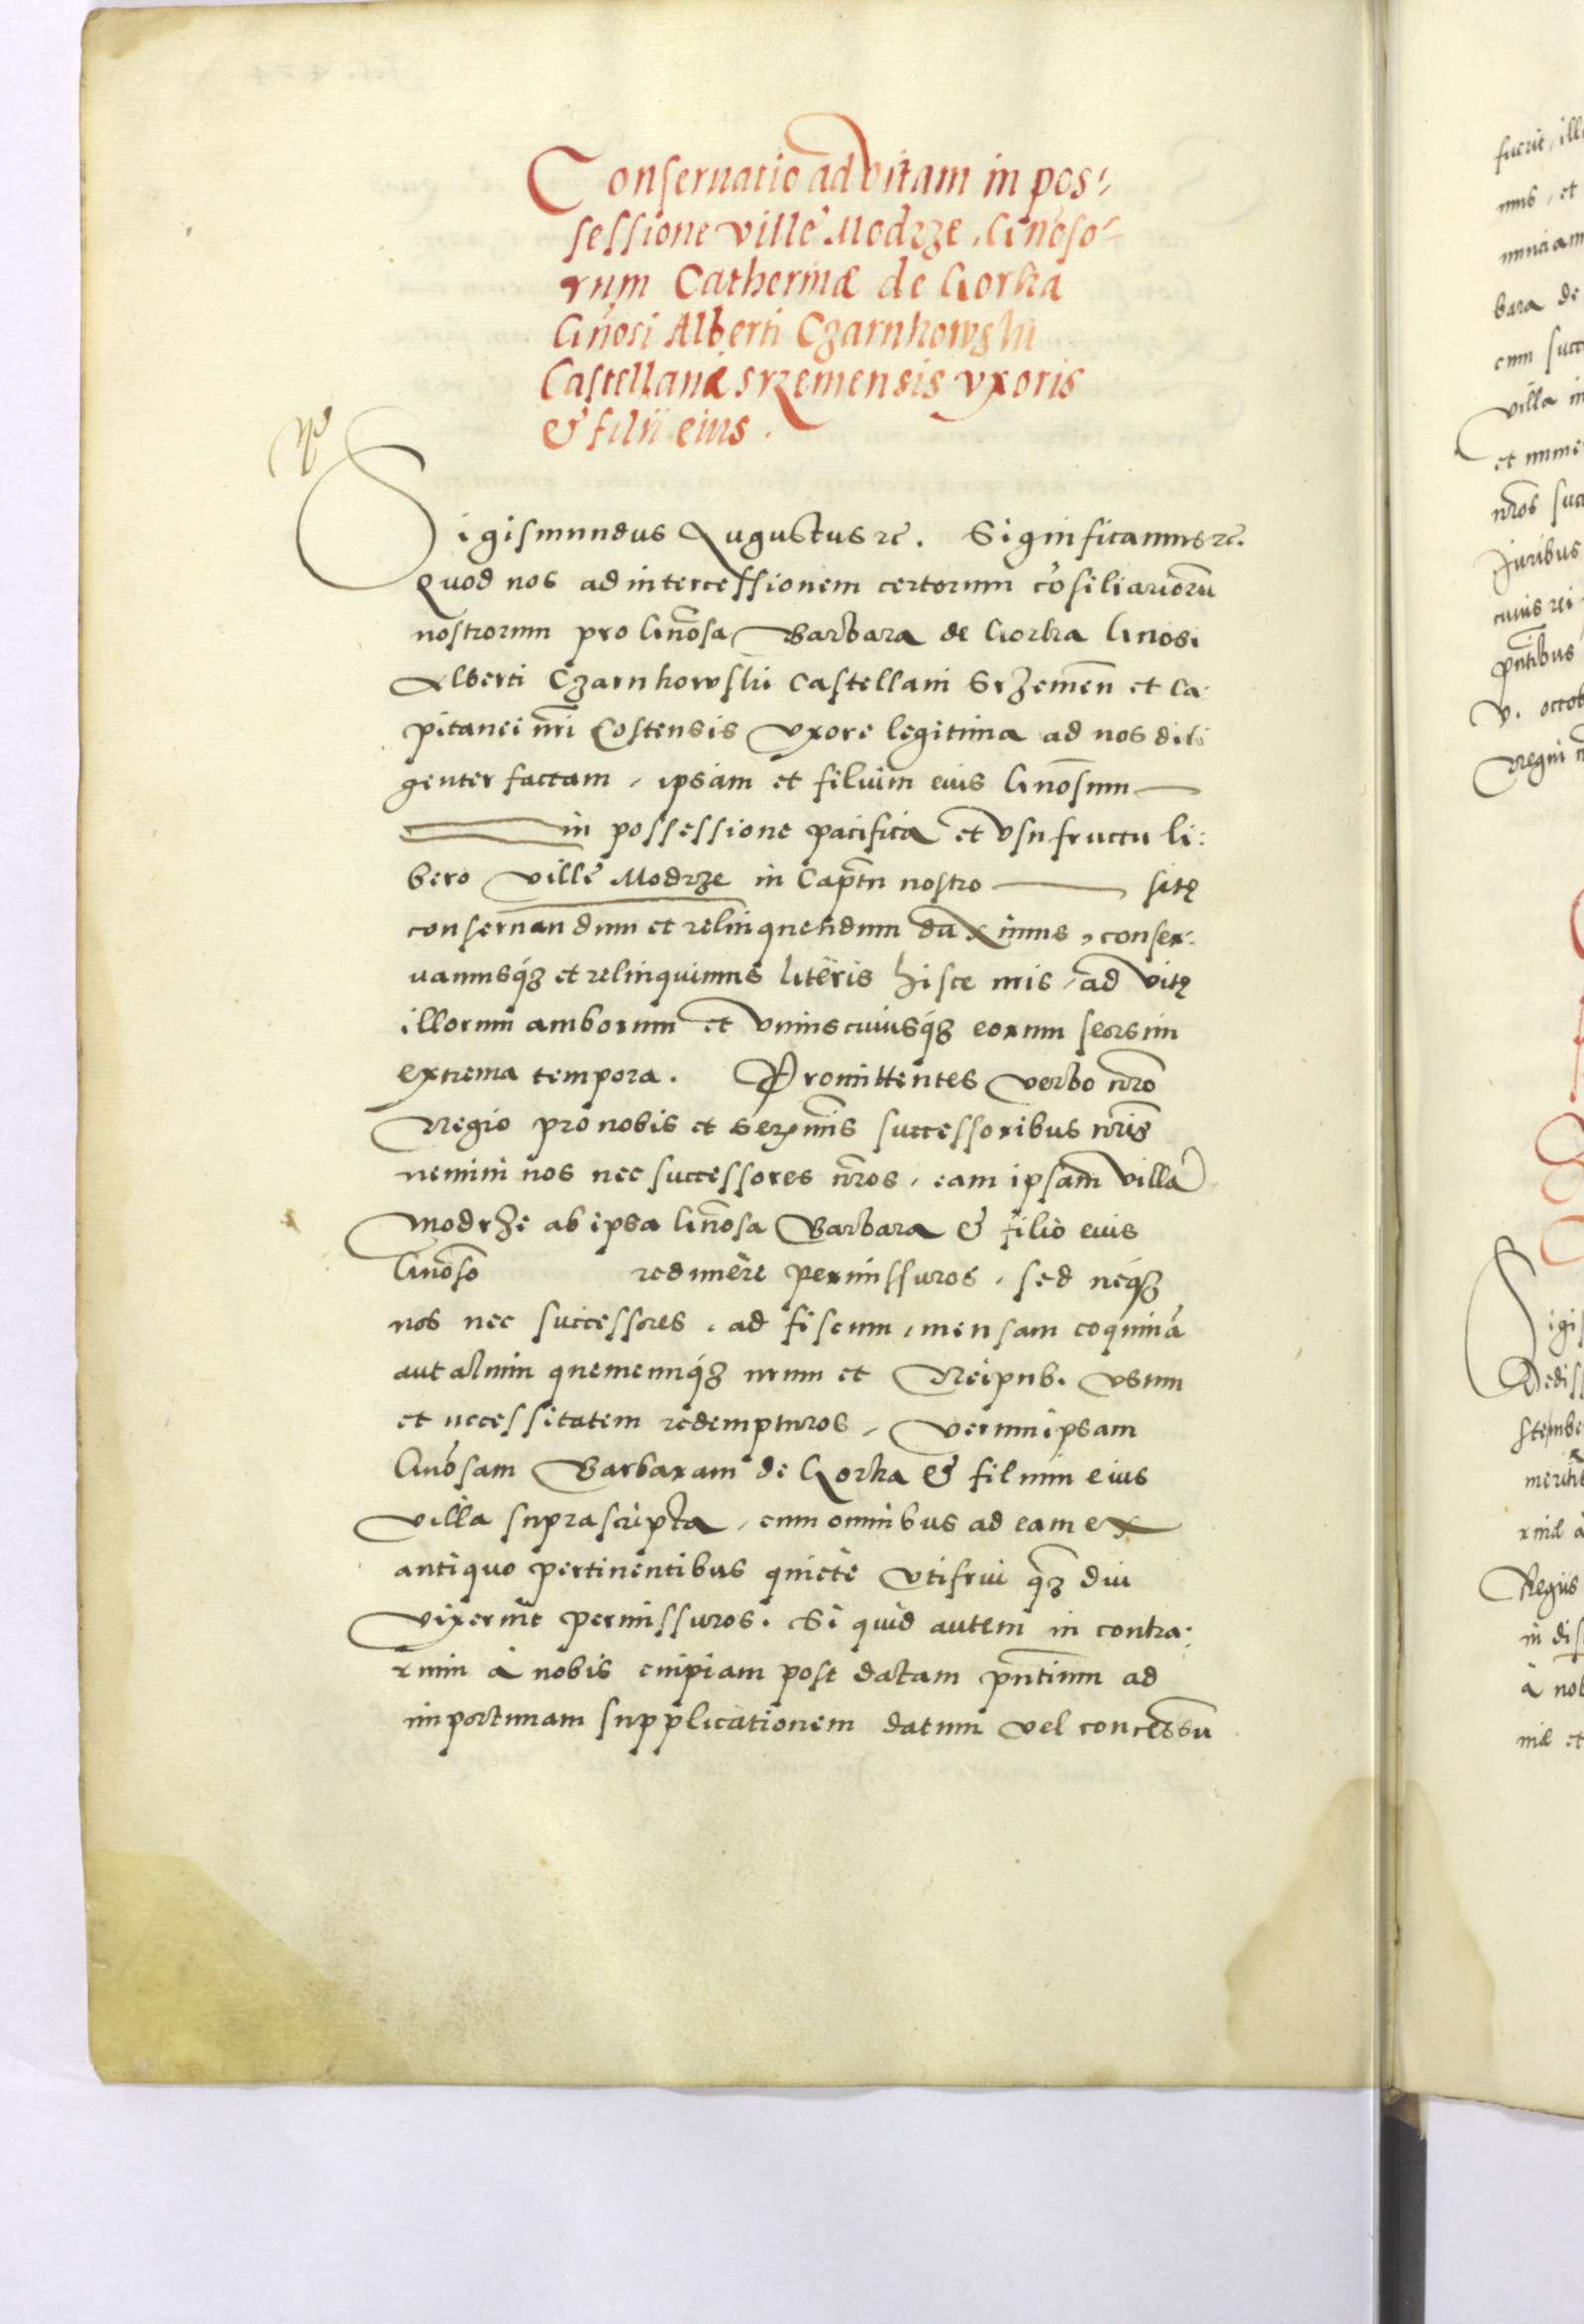 Conseruatio ad vitam in pos=
sessione ville Modrze, Gnoso=
rum Catherinæ de Gorka
Gnosi Alberti Czarnkowski
Castellani Srzemensis vxoris
& filii eius.
Sigismundus Augustus rc. Significamus rc.
Quod nos ad intercessionem certorum cōsiliariorū
nostrorum pro Gnosa Barbara de Gorka Gnosi
Alberti Czarnkowski Castellani Srzemen̄ et Ca:
pitanei nr̄i Costensis vxore legitima ad nos dili
genter factam, ipsam et filium eius Gnosum
in possessione pacifica et vsufructu li:
bero ville Modrze in Captn nostro sitę
conseruandum et relinquendum duximus, conser:
uamusq̃3 et relinquimus literis hisce nris, ad vitę
illorum amborum et vniuscuiusq̃3 eorum seorsim
extrema tempora. Promittentes verbo nr̄o
Regio pro nobis et Sermis successoribus nr̄is
nemini nos nec successores nr̄os, eam ipsam villā
Modrze ab ipsa Gnosa Barbara & filio eius
Gnoso redimere permissuros, sed neq3
nos nec successores, ad fiscum, mensam coquinā
aut alium quemcunq̃3 nrum et Reipub. vsum
et necessitatem redempturos, verum ipsam
Gnosam Barbaram de Gorka & filium eius
villa suprascripta, cum omnibus ad eam ex
antiquo pertinentibus quiete vtifrui q̃3 diu
vixerint permissuros. Si quid autem in contra:
rium à nobis cuipiam post datam pn̄tium ad
importunam supplicationem datum vel concessū
fuerit, ill
nus, et
bara de
cum succ
villa in
nr̄os suc
Juribus
cuius rei
pn̄tibus
v. octob
Regni n
Sigis
Dedis
Regiis
in dis
à nob
niæ et